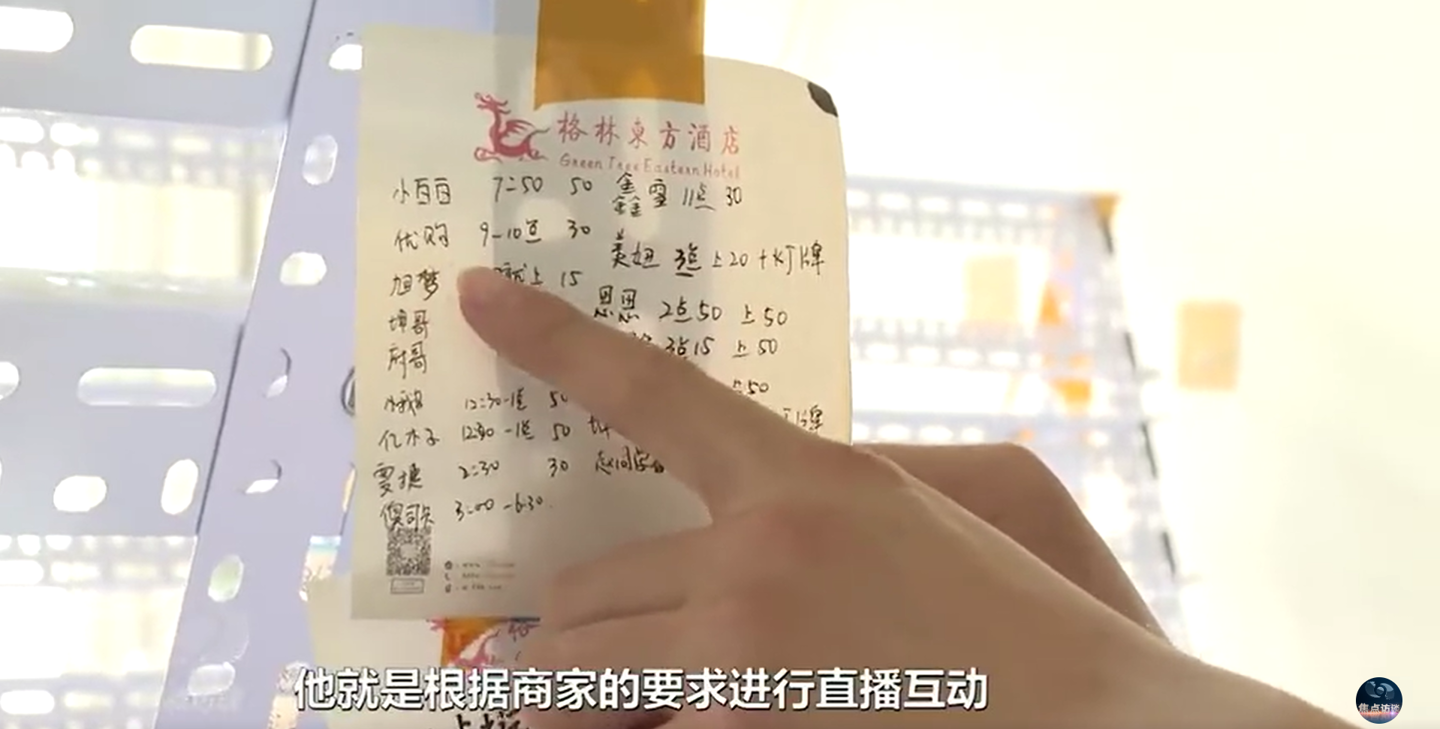 格林東方酒店
GreenTree Eastern Hotel
小百百 7:50 50 鑫雪 11点 30
优购 9-10点 30
美妞 3点 上20+灯牌
旭梦 就上 15
恩恩 2点50 上50
坤哥
府哥
3点15 上50
50
12:30-1点 50
亿木子 12:30-1点 50
雯捷 2:30 30
3:00-6:30
他就是根据商家的要求进行直播互动
焦点访谈